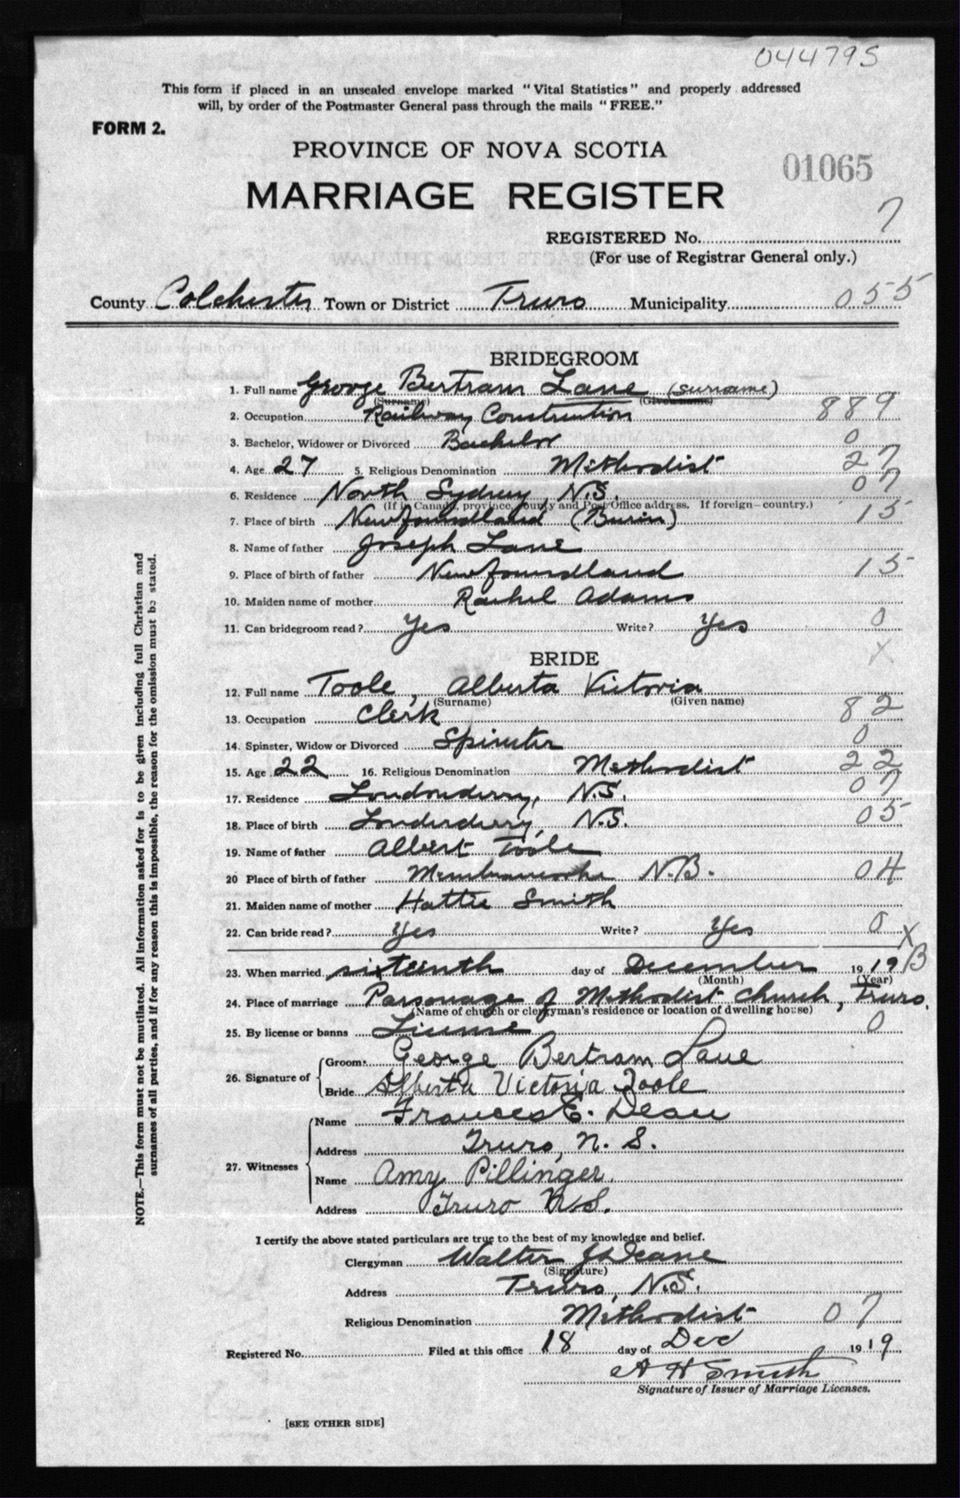 044795
This form if placed in an unsealed envelope marked "Vital Statistics" and properly addressed
will, by order of the Postmaster General pass through the mails "FREE."
FORM 2.
PROVINCE OF NOVA SCOTIA
01065
MARRIAGE REGISTER
REGISTERED No. 7
(For use of Registrar General only.)
County Colchester Town or District Truro Municipality 055
BRIDEGROOM
1. Full name George Bertram Lane (surname)
(Surname) (Given name)
2. Occupation Railway Construction 889
3. Bachelor, Widower or Divorced Bachelor 0
4. Age 27 5. Religious Denomination Methodist 27
6. Residence North Sydney, N.S. 07
(If in Canada, province, county and Post Office address. If foreign—country.)
7. Place of birth Newfoundland (Burin) 15
8. Name of father Joseph Lane
9. Place of birth of father Newfoundland 15
10. Maiden name of mother Rachel Adams
11. Can bridegroom read? Yes Write? Yes 0
X
BRIDE
12. Full name Toole, Alberta Victoria
(Surname) (Given name)
13. Occupation Clerk 82
14. Spinster, Widow or Divorced Spinster 0
15. Age 22 16. Religious Denomination Methodist 22
17. Residence Londonderry, N.S. 07
18. Place of birth Londonderry, N.S. 05
19. Name of father Albert Toole
20 Place of birth of father N.B. 04
21. Maiden name of mother Hattie Smith
22. Can bride read? Yes Write? Yes 0
X
23. When married sixteenth day of December 1919 B
(Month) (Year)
24. Place of marriage Parsonage of Methodist Church, Truro.
(Name of church or clergyman's residence or location of dwelling house)
25. By license or banns License 0
26. Signature of Groom: George Bertram Lane
Bride Alberta Victoria Toole
27. Witnesses Name Frances E. Dean
Address Truro, N. S.
Name Amy Pillinger.
Address Truro N.S.
I certify the above stated particulars are true to the best of my knowledge and belief.
Clergyman Walter
(Signature)
Address Truro, N.S.
Religious Denomination Methodist 07
Registered No. Filed at this office 18 day of Dec 1919
A H Smith
Signature of Issuer of Marriage Licenses.
[SEE OTHER SIDE]
NOTE.—This form must not be mutilated. All information asked for is to be given including full Christian and
surnames of all parties, and if for any reason this is impossible, the reason for the omission must be stated.